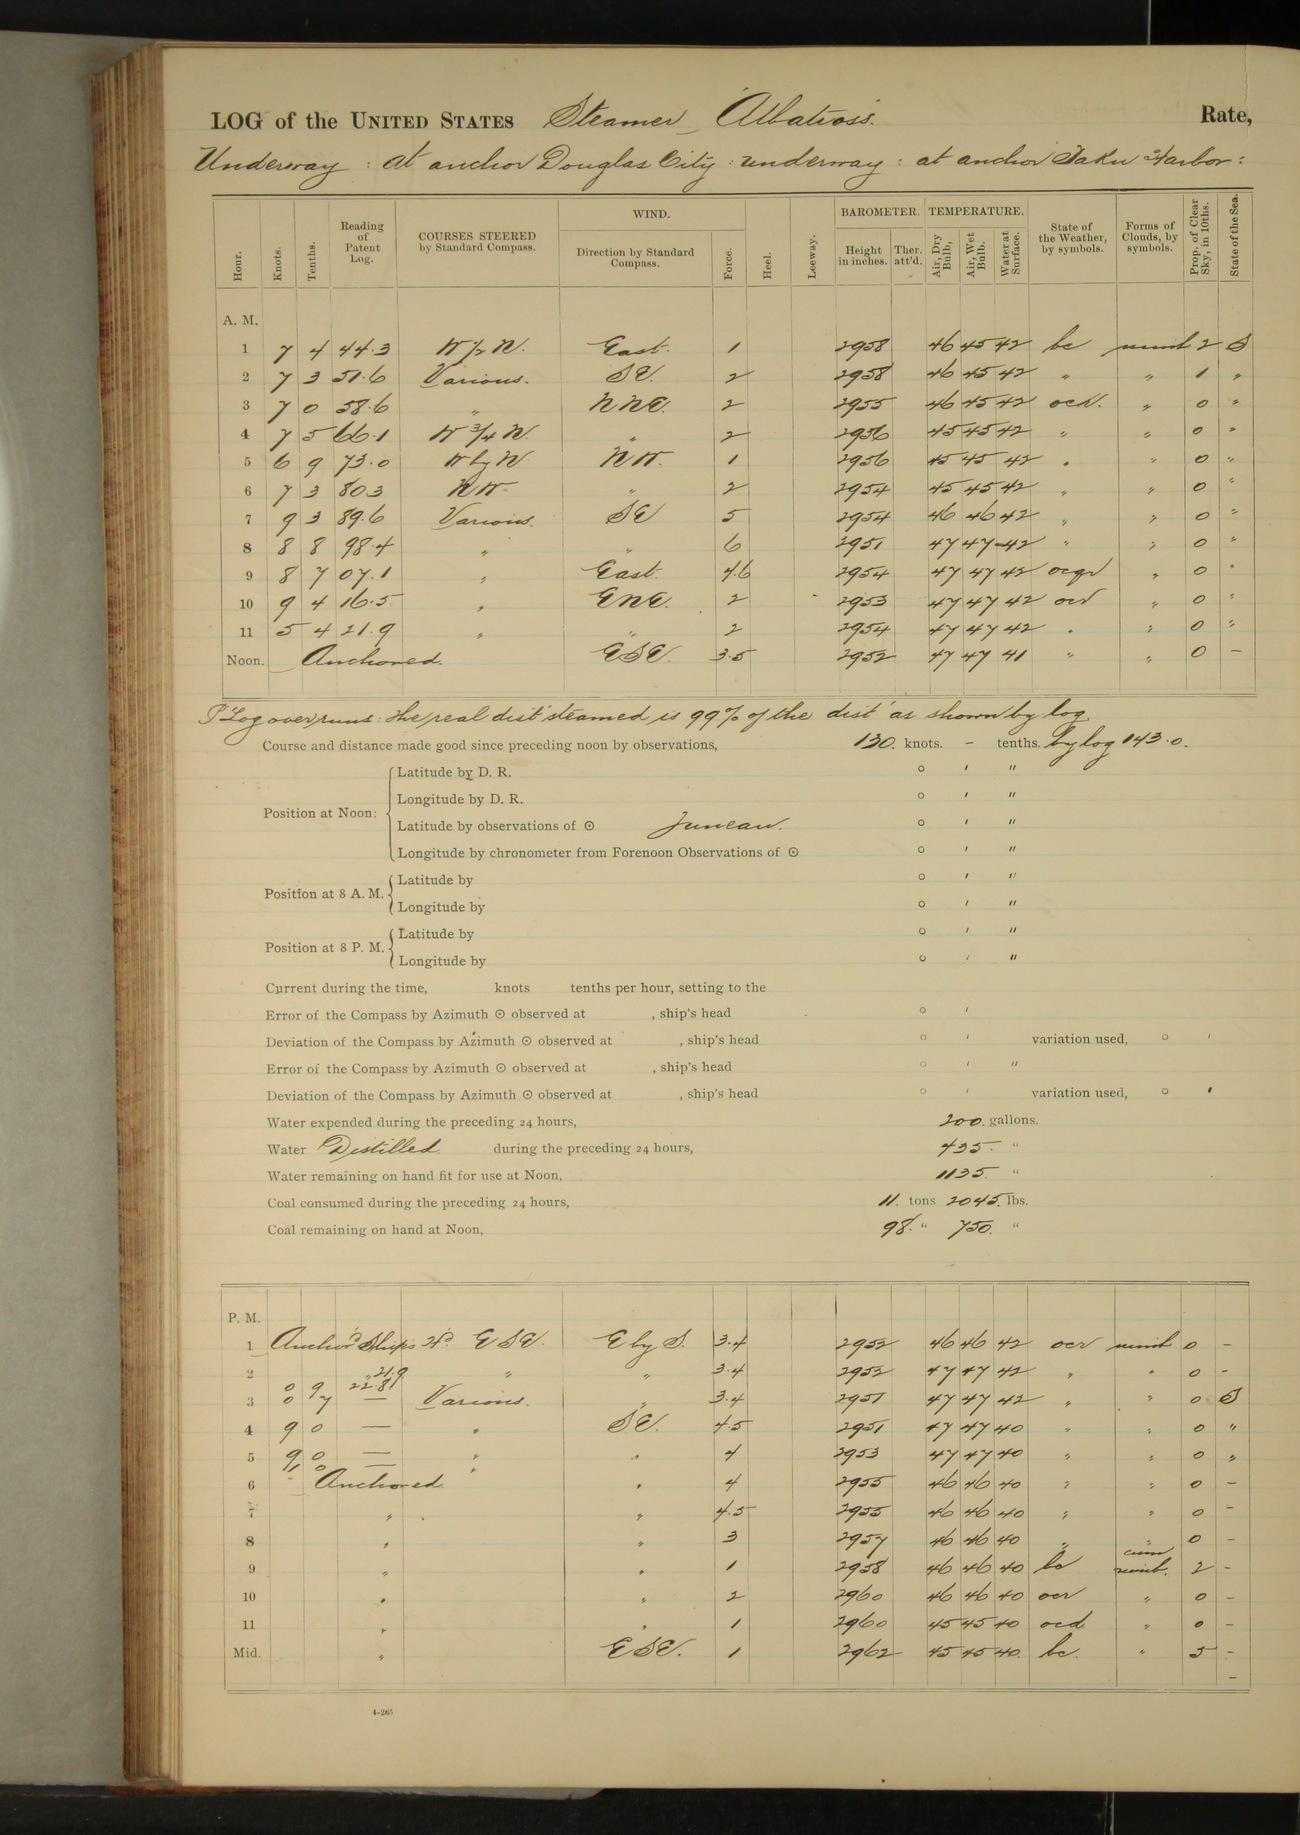 LOG of the UNITED STATES Steamer Albatross. Rate,
Underway : at anchor Douglas City : underway : at anchor Taku Harbor :
Hour. Knots. Tenths. Reading of Patent Log. COURSES STEERED by Standard Compass. WIND. Direction by Standard Compass. Force. Heel. Leeway. BAROMETER. Height in inches. Ther. att'd. TEMPERATURE. Air, Dry Bulb, Air, Wet Bulb. Water at Surface. State of the Weather, by symbols. Forms of Clouds, by symbols. Prop. of Clear Sky, in 10ths. State of the Sea.
A. M.
1 7 4 44.3 W ½ N. East. 1 2958 46 45 42 bc nimb 2 S
2 7 3 51.6 Various. SE. 2 2958 46 45 42 " " 1 "
3 7 0 58.6 " NNE. 2 2955 46 45 42 ocd. " 0 "
4 7 5 66.1 W ¾ N. " 2 2956 45 45 42 " " 0 "
5 6 9 73.0 W by N NW. 1 2956 45 45 42 " " 0 "
6 7 3 80.3 NW. " 2 2954 45 45 42 " " 0 "
7 9 3 89.6 Various. SE 5 2954 46 46 42 " " 0 "
8 8 8 98.4 " " 6 2951 47 47 42 " " 0 "
9 8 7 07.1 " East. 4.6 2954 47 47 42 ocqr " 0 "
10 9 4 16.5 " ENE. 2 2953 47 47 42 ocr " 0 "
11 5 4 21.9 " " 2 2954 47 47 42 " " 0 "
Noon. Anchored. ESE. 3.5 2952 47 47 41 " " 0 –
P Log over runs. The real dist steamed is 99% of the dist as shown by log.
Course and distance made good since preceding noon by observations, 130. knots. – tenths. by log 143.0.
Latitude by D. R. ° ' "
Longitude by D. R. ° ' "
Position at Noon:
Latitude by observations of ☉ Juneau. ° ' "
Longitude by chronometer from Forenoon Observations of ☉ ° ' "
Position at 8 A. M. Latitude by ° ' "
Longitude by ° ' "
Position at 8 P. M. Latitude by ° ' "
Longitude by ° ' "
Current during the time, knots tenths per hour, setting to the
Error of the Compass by Azimuth ☉ observed at , ship's head ° '
Deviation of the Compass by Azimuth ☉ observed at , ship's head ° ' variation used, ° '
Error of the Compass by Azimuth ☉ observed at , ship's head ° ' "
Deviation of the Compass by Azimuth ☉ observed at , ship's head ° ' variation used, ° '
Water expended during the preceding 24 hours, 200. gallons.
Water Distilled. during the preceding 24 hours, 435. "
Water remaining on hand fit for use at Noon, 1135. "
Coal consumed during the preceding 24 hours, 11. tons 2045. lbs.
Coal remaining on hand at Noon, 98. " 750. "
P. M.
1 Anchor'd Ships H'd ESE. E by S. 3.4 2952 46 46 42 ocr nimb 0 –
2 " 21.9 " " 3.4 2952 47 47 42 " " 0 –
0 9 22.8
3 0 7 — Various. " 3.4 2951 47 47 42 " " 0 S
4 9 0 — " SE. 4.5 2951 47 47 40 " " 0 "
5 9 0 — " " 4 2953 47 47 40 " " 0 "
1 0 — "
6 Anchored. " 4 2955 46 46 40 " " 0 –
7 " " 4.5 2955 46 46 40 " " 0 –
8 " " 3 2957 46 46 40 " " 0 –
9 " " 1 2958 46 46 40 bc cum nimb. 2 –
10 " " 2 2960 46 46 40 ocr " 0 –
11 " " 1 2960 45 45 40 ocd " 0 –
Mid. " ESE. 1 2962 45 45 40. bc. " 5 –
4–265